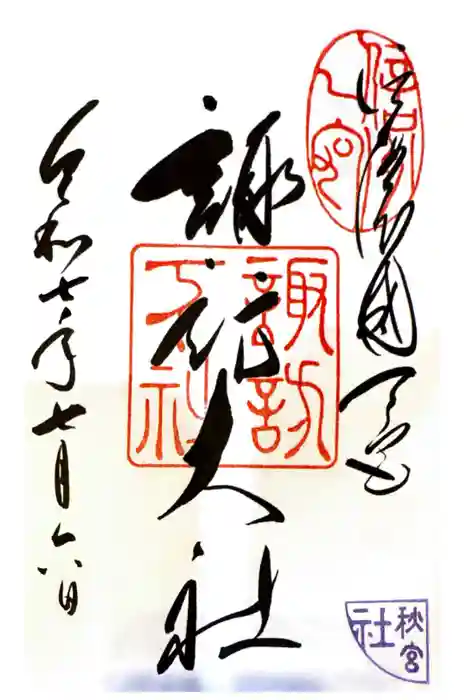 信濃國一宮
諏訪大社
諏訪大社
令和七年七月六日
秋宮
社